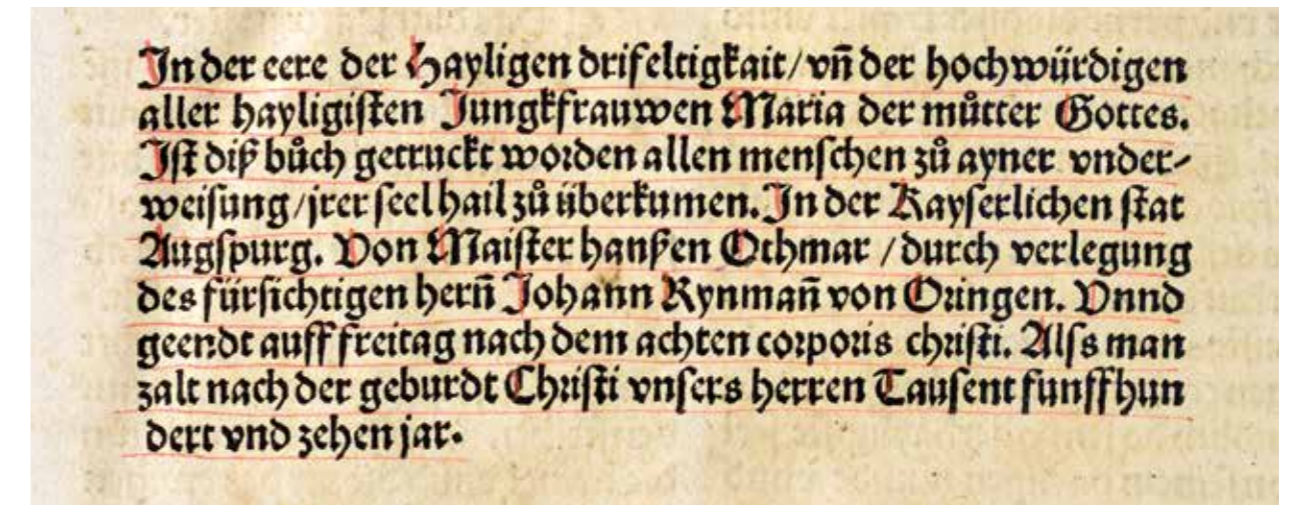 In der eere der Hayligen drifeltigkait/vn̄ der hochwürdigen
aller hayligisten Jungkfrauwen Maria der můtter Gottes.
Ist diß bůch getruckt worden allen menschen zů ayner vnder-
weisung/jrer seel hail zů überkumen. In der Kayserlichen stat
Augspurg. Von Maister hanßen Othmar /durch verlegung
des fürsichtigen hern̄ Johann Rynman̄ von Oringen. Vnnd
geendt auff freitag nach dem achten corporis christi. Alss man
zalt nach der geburdt Christi vnsers herren Tausent funffhun
dert vnd zehen jar.